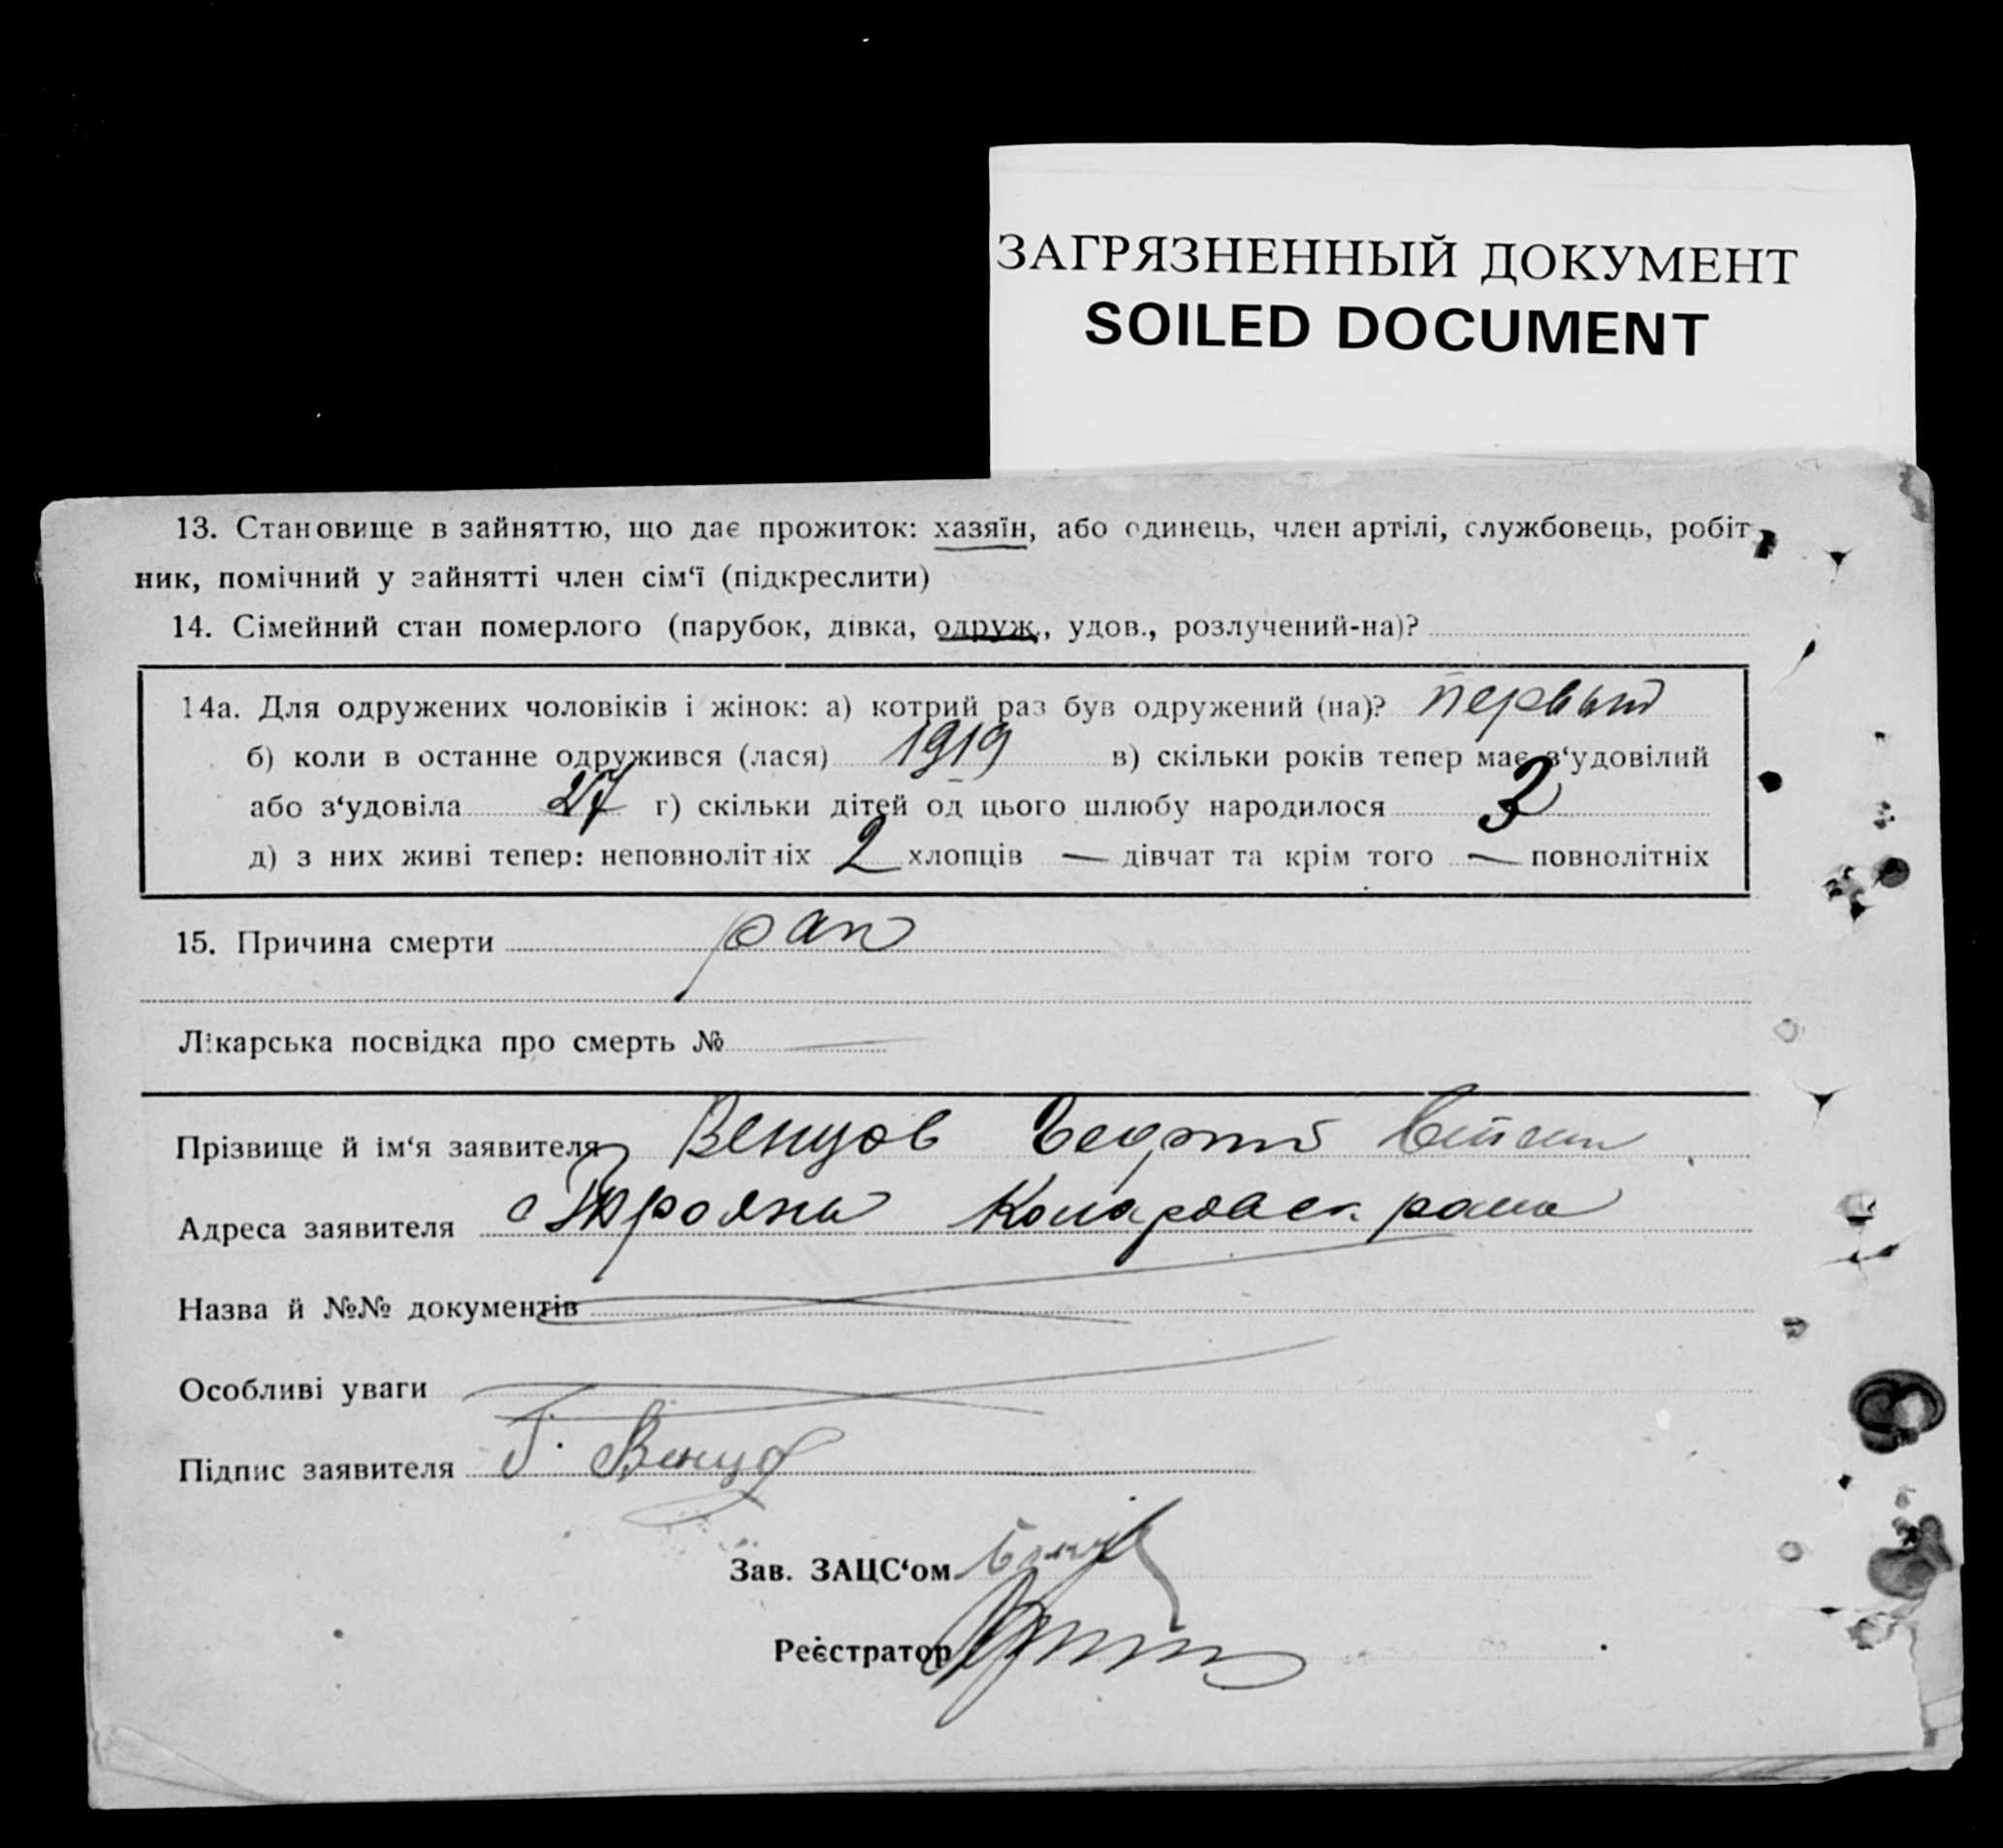 ЗАГРЯЗНЕННЫЙ ДОКУМЕНТ
SOILED DOCUMENT
13. Становище в зайняттю, що дає прожиток: хазяїн, або одинець, член артілі, службовець, робіт
ник, помічний у зайнятті член сім‘ї (підкреслити)
14. Сімейний стан померлого (парубок, дівка, одруж., удов., розлучений-на)?
14а. Для одружених чоловіків і жінок: а) котрий раз був одружений (на)? первый
б) коли в останне одружився (лася) 1919 в) скільки років тепер має з‘удовілий
або з‘удовіла 27 г) скільки дітей од цього шлюбу народилося
д) з них живі тепер: неповнолітніх 2 хлопців — дівчат та крім того — повнолітніх
15. Причина смерти рак
Лікарська посвідка про смерть № —
Прізвище й ім‘я заявителя Венцов Георгий
Адреса заявителя с Трояны
Назва й №№ документів
Особливі уваги
Підпис заявителя Г. Венцов
Зав. ЗАЦС‘ом
Реєстратор